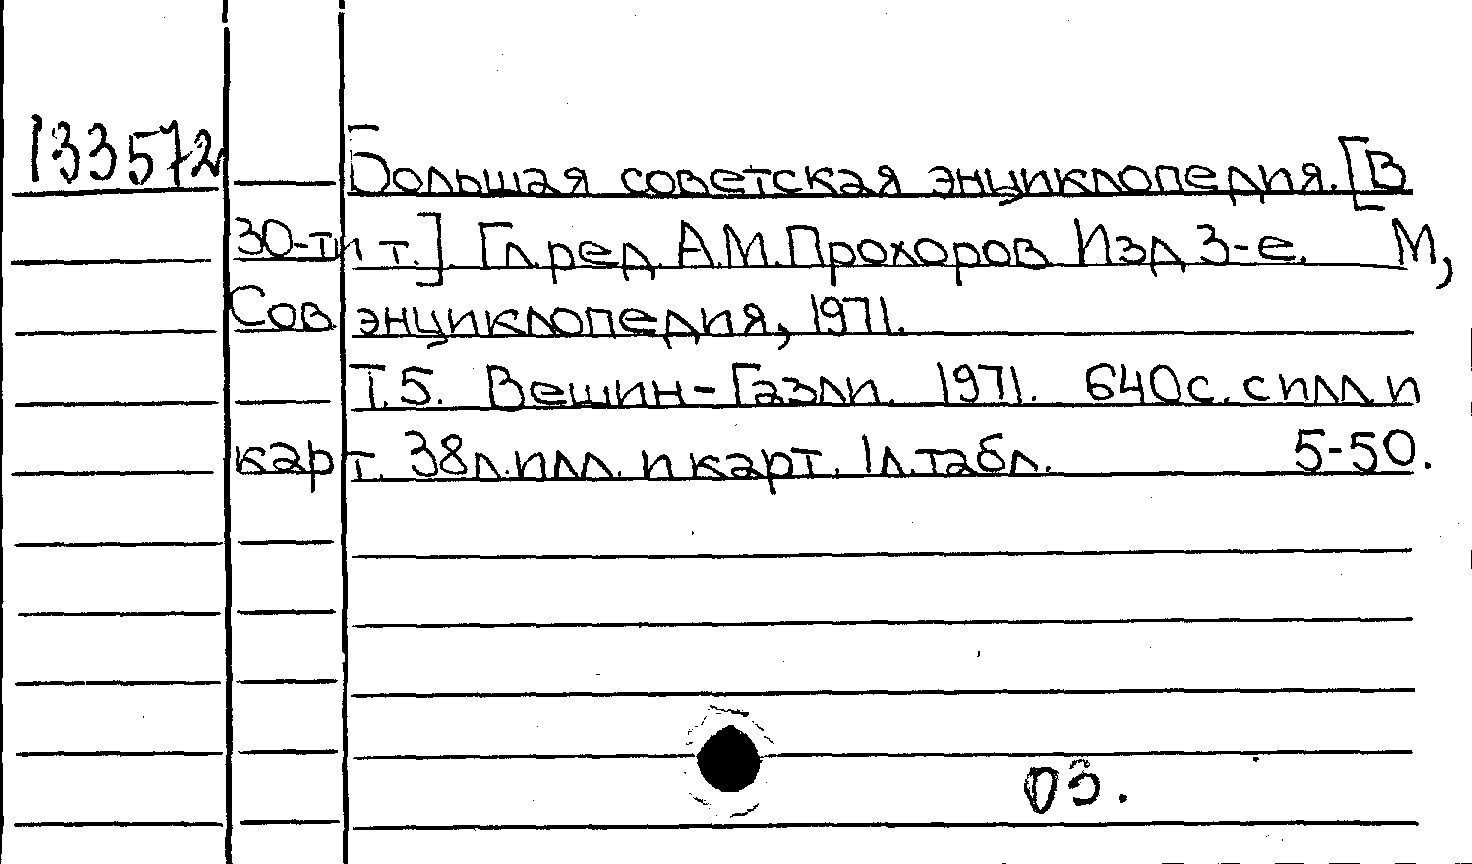 133572 Большая советская энциклопедия. [В
30-ти т.]. Гл.ред. А.М.Прохоров Изд 3-е. М,
Сов энциклопедия, 1971.
Т.5. Вешин-Газли. 1971. 640с. с илл и
карт. 38л.илл. и карт. 1л.табл. 5-50.
03.